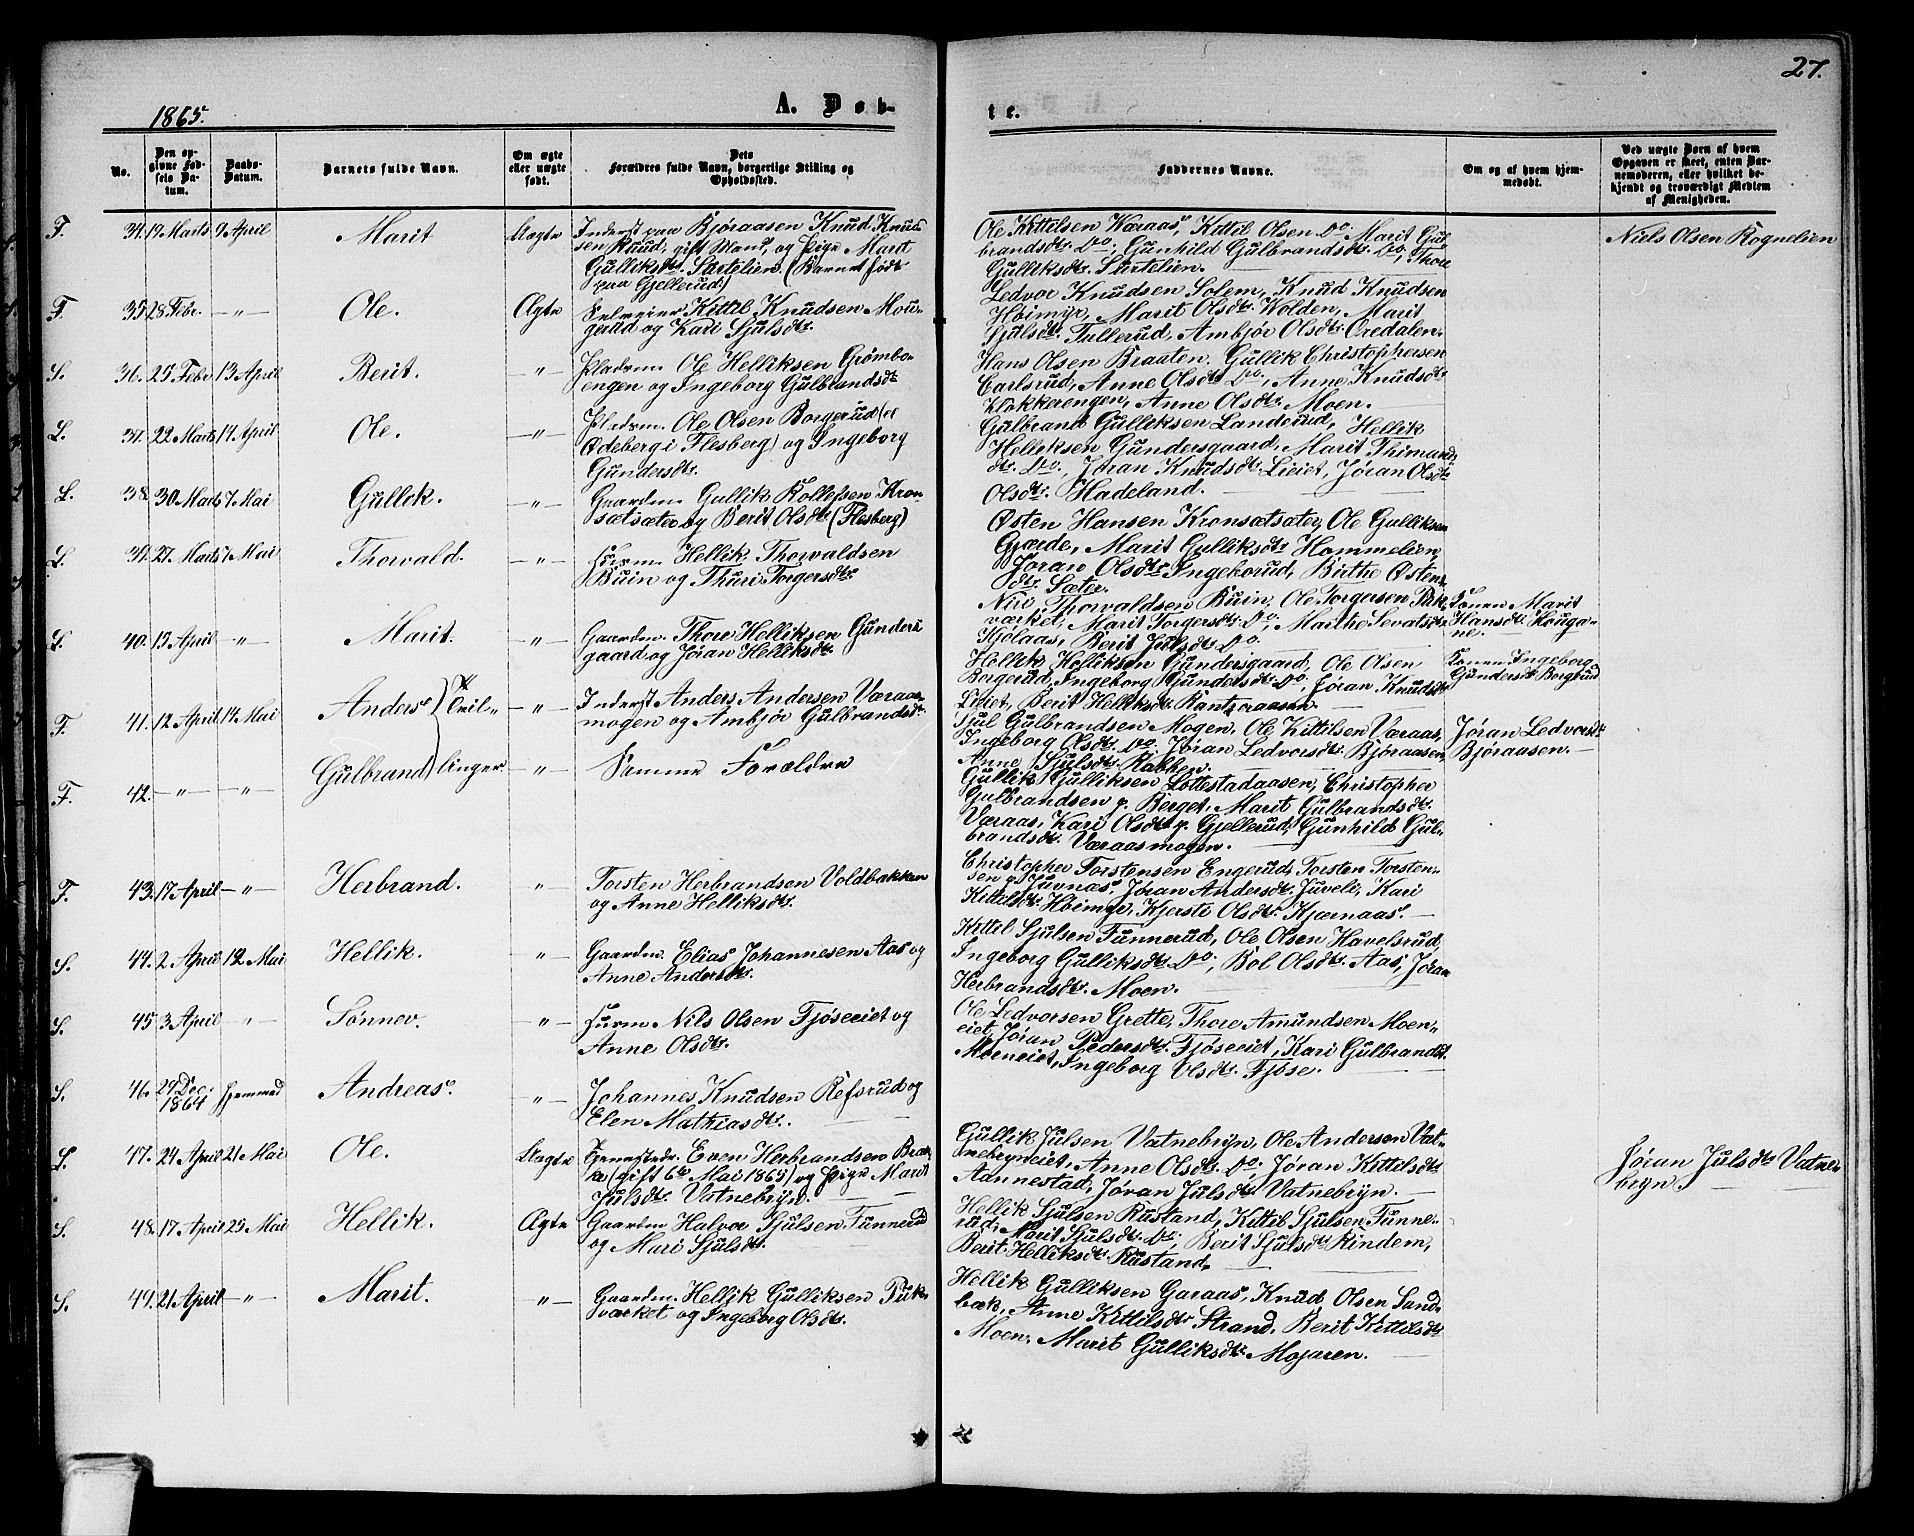 27.
1865.
A. Døb-
te.
No.
Den opgivne Fødsels Datum.
Daabs-Datum.
Barnets fulde Navn.
Om ægte eller uægte født.
Dets Forældres fulde Navn, borgerlige Stilling og Opholdssted.
Faddernes Navne.
Om og af hvem hjemmedøbt.
Ved uægte Børn af hvem Opgaven er skeet, enten Barnemoderen, eller hvilket bekjendt og troværdigt Medlem af Menigheden.
F. 34. 19 Marts 9 April Marit Uægte Inderst paa Bjøraasen Knud Knud-
sen Ruud, gift Mand, og Pige Marit
Gulliksdtr. Sartelien. (Barnet født
paa Gjellerud)
Ole Kittilsen Væraas, Kittil Olsen Do. Marit Gul-
brandsdtr. Do, Gunhild Gulbrandsdtr. Do, Thore
Gulliksdtr. Sartelien.
Niels Olsen Rognelien
F. 35. 28 Febr. —"— Ole. Ægte Selveier Kittil Knudsen Mou-
gerud og Kari Sjulsdtr.
Ledvor Knudsen Solem, Knud Knudsen
Høimyr, Marit Olsdtr. Kolden, Marit
Sjulsdtr. Tullerud, Ambjør Olsdtr. Overdalen.
S. 36. 25 Febr 13 April Berit. —"— Pladsm. Ole Helliksen Grømbo-
engen og Ingeborg Gulbrandsdtr
Hans Olsen Braaten, Gullik Christophersen
Carlsrud, Anne Olsdtr Do, Anne Knudsdtr.
Klokkerengen, Anne Olsdtr. Moen.
L. 37. 22 Marts 14 April Ole. —"— Pladsm. Ole Olsen Borgerud (el
Ødeberg i Flesberg) og Ingeborg
Gundersdtr.
Gulbrand Gulliksen Landerud, Hellik
Helliksen Gundersgaard, Marit Thimunds
dtr. Do, Jøran Knudsdtr. Lieiet, Jøran Olsdtr
Olsdtr. Hadeland.
L. 38. 30 Marts 7 Mai Gullik. —"— Gaardm. Gullik Rollefsen Kron-
sætsæter og Berit Olsdtr (Flesberg)
Østen Hansen Kronsætsæter, Ole Gulliksen
Gjærde, Marit Gulliksdtr. Hommelien,
Jøran Olsdtr. Ingekorud, Birthe Østens
dtr. Sæter.
L. 39. 27 Marts 7 Mai Thorvald. —"— Huusm. Hellik Thorvaldsen
Buin og Thuri Torgersdtr.
Niri Thorvaldsen Buin, Ole Torgersen Puk-
værket, Marit Torgersdtr. Do, Marthe Sevatsdtr.
Kjølaas, Berit Julsdtr. Do.
Konen Marit
Hansdtr. Kouga-
ne.
L. 40. 15 April —"— Marit. —"— Gaardm. Thore Helliksen Gunders
gaard og Jøran Helliksdtr.
Hellik Helliksen Gundersgaard, Ole Olsen
Borgerud, Ingeborg Gundersdtr. Do, Jøran Knudsdtr
Lieiet, Berit Helliksdtr. Kantsraasen.
Konen Ingeborg
Gundersdtr Borgerud
F. 41. 12 April 14 Mai Anders Tvil- —"— Inderst Anders Andersen Væraas-
mogen og Ambjør Gulbrandsdtr.
Sjul Gulbrandsen Mogen, Ole Kittilsen Væraas,
Ingeborg Olsdtr. Do. Jøran Ledvorsdtr. Bjøraasen,
Anne Sjulsdtr. Rabben.
Jøran Ledvorsdtr.
Bjøraasen.
F. 42. —"— —"— Gulbrand linger. —"— Samme Forældre
Gullik Gulliksen Lottestadaasen, Christopher
Gulbrandsen p. Berget, Marit Gulbrandsdtr.
Væraas, Kari Olsdtr. p. Gjellerud, Gunhild Gul-
brandsdtr. Væraasmogen.
F. 43. 17 April —"— Herbrand. " Torsten Herbrandsen Voldbakken
og Anne Helliksdtr.
Christopher Torstensen Engerud, Torsten Torsten-
sen p. Juvnæs, Jøran Andersdtr. Juveli, Kari
Kittelsdtr. Høimyr, Kjersti Olsdtr. Kjærnaas.
S. 44. 2 April 12 Mai Hellik. —"— Gaardm. Elias Johannesen Aas og
Anne Andersdtr.
Kittil Sjulsen Funnerud, Ole Olsen Havelsrud,
Ingeborg Gulliksdtr. Do, Bol Olsdtr. Aas, Jøran
Herbrandsdtr. Moen.
S. 45 3 April —"— Sønnev. —"— Huusm Nils Olsen Fjøseeiet og
Anne Olsdtr.
Ole Ledvorsen Grette, Thore Amundsen Moen-
eiet, Jøran Pedersdtr. Fjøseeiet, Kari Gulbrandsdtr.
Moeneiet, Ingeborg Olsdtr. Fjøse.
S. 46. 29 Dec. 1864 Hjemmed Andreas. —"— Johannes Knudsen Refsrud og
Elen Mathiasdtr.
L. 47. 24 April 21 Mai Ole. Uægte Tjenestedr. Even Herbrandsen Braa-
ka (gift 6te Mai 1865) og Pige Marit
Julsdtr. Vatnebryn.
Gullik Julsen Vatnebryn, Ole Andersen Vat-
nebryneiet, Anne Olsdtr. Do. Jøran Kittilsdtr
Aannestad, Jøran Julsdtr. Vatnebryn.
Jøran Julsdtr Vatne-
bryn.
S. 48. 17 April 25 Mai Hellik. Ægte Gaardm Halvor Sjulsen Funnerud
og Mari Sjulsdtr.
Hellik Sjulsen Rustand, Kittil Sjulsen Funne-
rud, Marit Sjulsdtr. Do, Berit Sjulsdtr Rindem,
Berit Helliksdtr. Rustand.
S. 49. 21 April —"— Marit. —"— Gaardm. Hellik Gulliksen Puk-
værket og Ingeborg Olsdtr.
Hellik Gulliksen Garaas, Knud Olsen Sand-
bæk, Anne Kittilsdtr Strand, Berit Kittilsdtr
Moen, Marit Gulliksdtr. Mojaren.